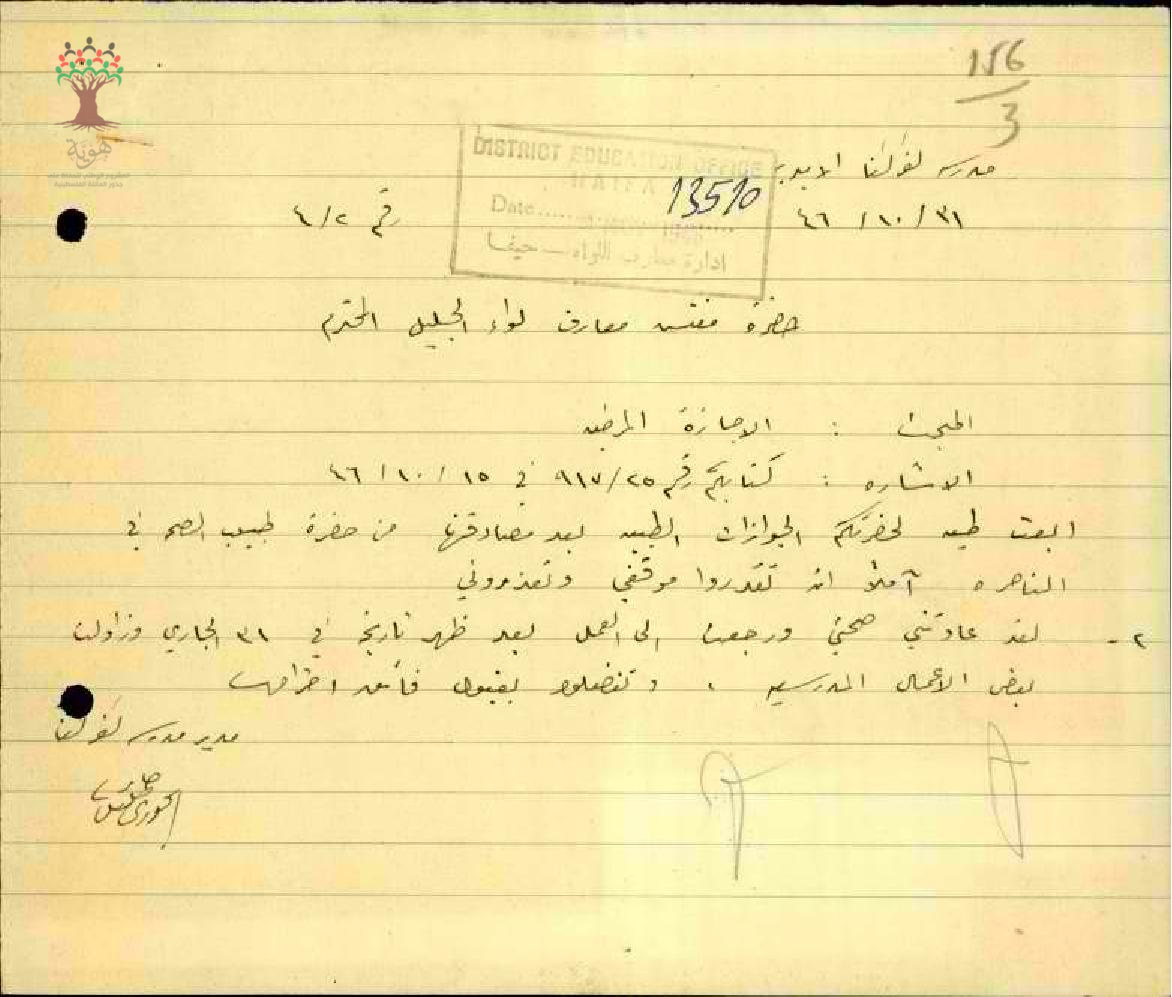 156
3
مدرسة كفركنا الاميرية
DISTRICT EDUCATION OFFICE
HAIFA
13510
Date
ادارة معارف اللواء - حيفا
٣١ / ١٠ / ٤٦
رقم ٤/٢
حضرة مفتش معارف لواء الجليل المحترم
المبحث : الاجازة المرضيه
الاشاره : كتابكم رقم ٩١٧/٢٥ في ١٥ / ١٠ / ٤٦
ابعث طيه لحضرتكم الجوازات الطبيه بعد مصادقتها من حضرة طبيب الصحه في
الناصره آملاً ان تقدروا موقفي وتعذروني
٢ - لقد عاودتني صحتي ورجعت الى العمل بعد ظهر تاريخ في ٣١ الجاري وزاولت
بعض الاعمال المدرسيه . وتفضلوا بقبول فائق احترامي
مدير مدرسة كفركنا
الخوري
هوية